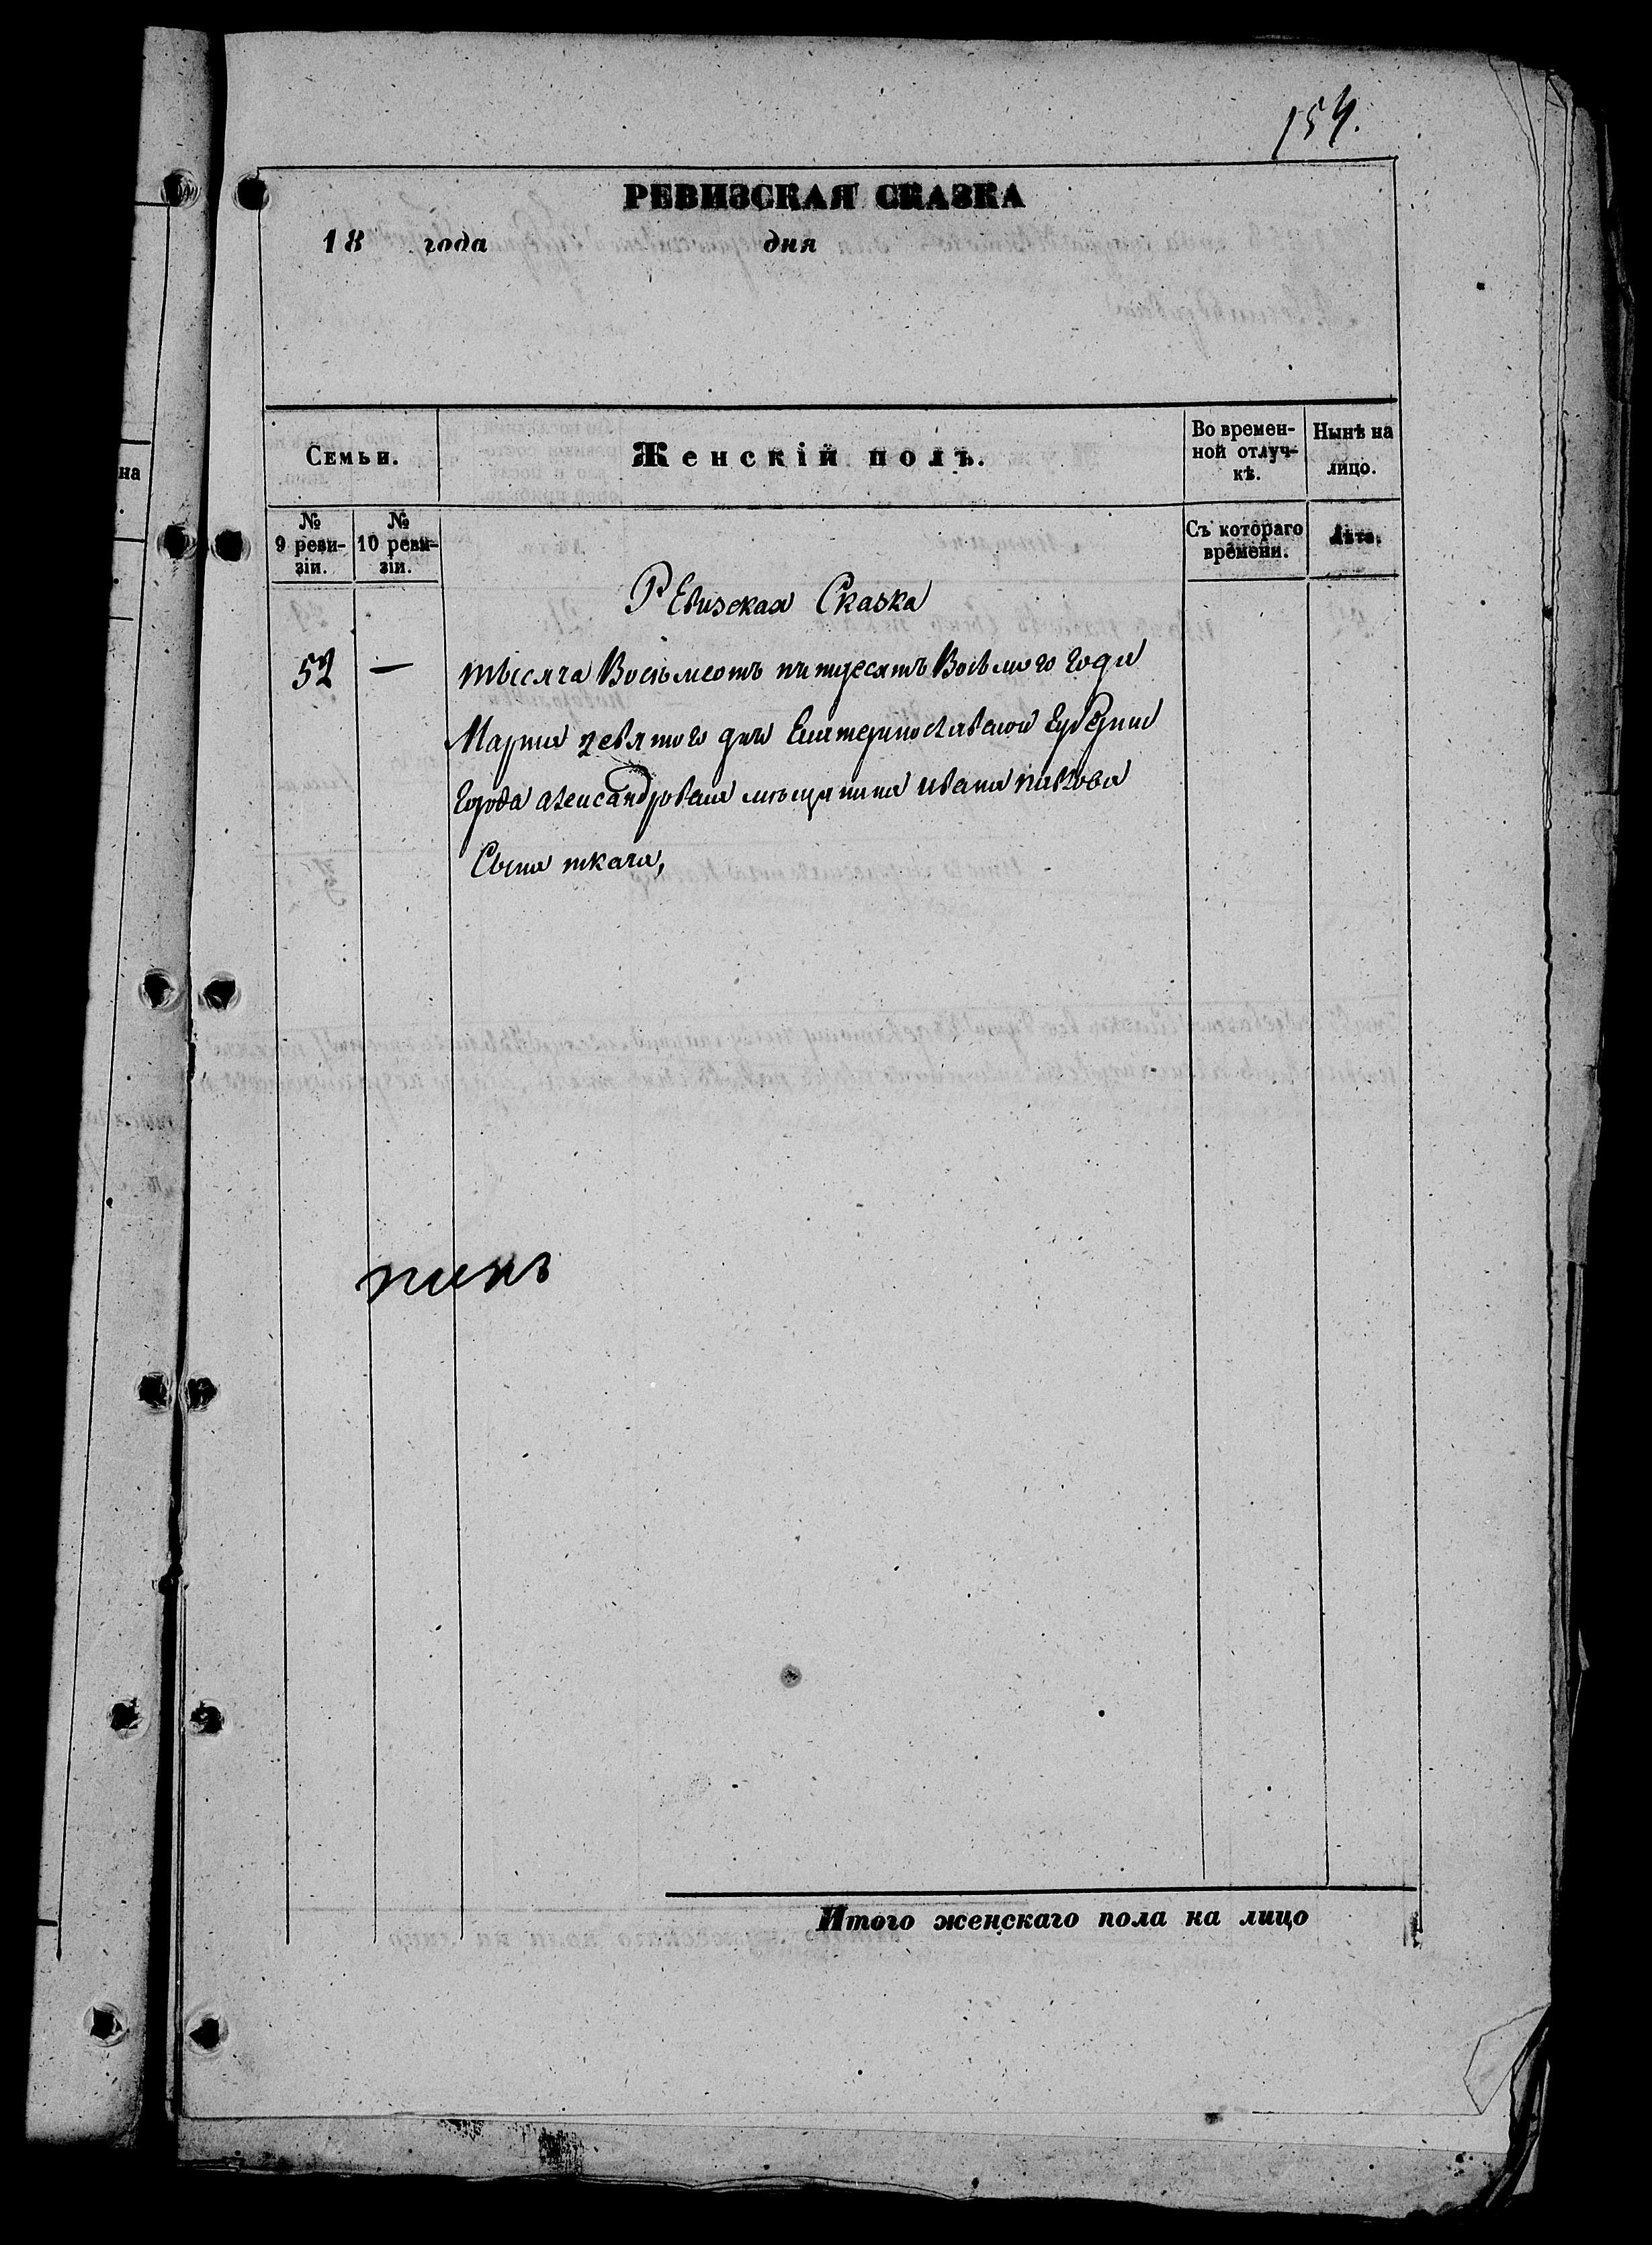 154.
РЕВИЗСКАЯ СКАЗКА
18 года дня
Семьи.
Женскій полъ.
Во времен-
ной отлуч-
кѣ.
Нынѣ на
лицо.
№
9 реви-
зіи.
№
10 реви-
зіи.
Съ котораго
времени.
Лѣта.
на
Ревизская Сказка
52 — тысяча Восьмсотъ пятдесятъ Восьмого года
Марта девятого дня Екатеринославской Губернии
Города александровска мѣщанина ивана павлова
Сына ткача,
Итого женскаго пола на лицо